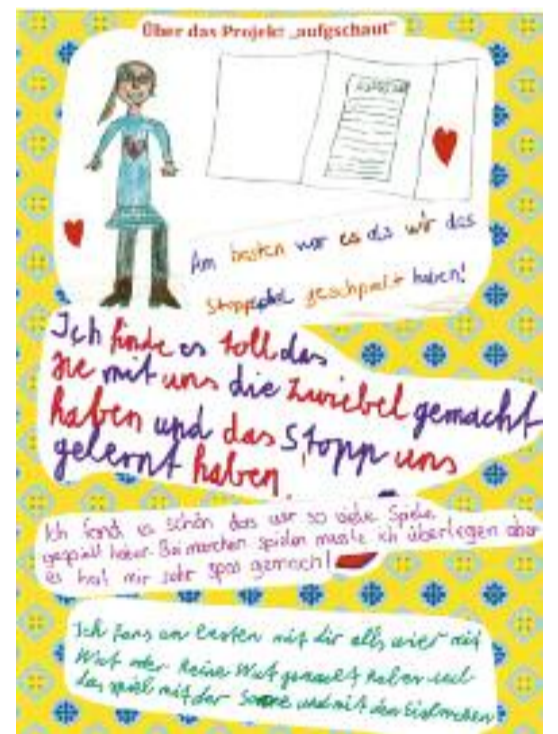 Über das Projekt „aufgschaut"
Am besten war es als wir das
Stoppspiel geschpielt haben!
Ich finde es toll das
sie mit uns die Zwiebel gemacht
haben und das Stopp uns
gelernt haben!
Ich fand es schön das wir so viele Spiele
gespielt haben. Bei manchen spielen musste ich überlegen aber
es hat mir sehr spas gemacht!
Ich fans am besten mit dir alls wier mit
Wut oder keine Wut gemacht haben und
das spiel mit der Sonne und mit den